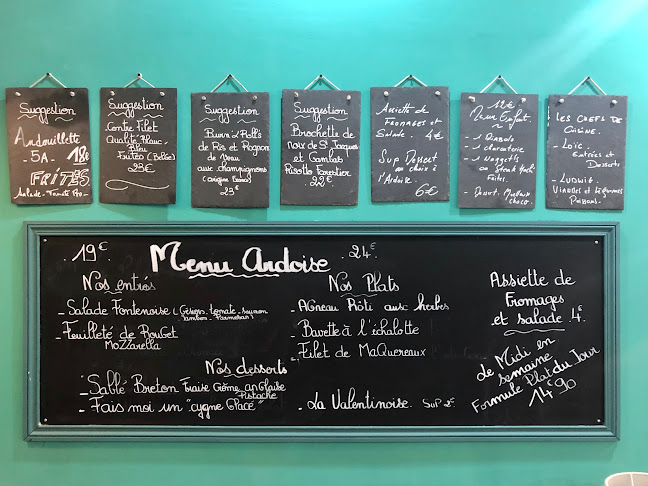 Suggestion
Andouillette
- 5A - 18€
FRITES
Salade - Tomate
Suggestion
Contre Filet
Qualité
Bleu
Frites (Belge)
23€
Suggestion
de Ris et Rognon
de Veau
aux champignons
23€
Suggestion
Brochette de
noix de St Jacques
et Gambas
Risotto Forestier
22€
Assiette de
FROMAGES et
Salade - 4€
Sup Dessert
au choix à
l'Ardoise.
6€
12€
Menu Enfant.
- Charcuterie
- Nuggets
ou Steak Haché
Frites.
- Dessert
Choco.
LES CHEFS DE
CUISINE.
- Loïc.
Entrées et
Desserts
- Ludwig.
Viandes et Légumes
Poissons.
19€ Menu Ardoise 24€
Nos entrés
- Salade Fontenoise (Gésiers. tomate.
Jambon. Parmesan)
- Feuilleté de Rouget
Mozzarella
Nos Plats
- Agneau Rôti aux herbes
- Bavette à l'échalotte
- Filet de Maquereaux
Nos desserts
- Sablé Breton Fraise Crème anglaise
Pistache
- Fais moi un "cygne Glacé"
- La Valentinoise. Sup 2€
Assiette de
Fromages
et salade 4€
de Midi en
semaine
Formule Plat du Jour
14€90